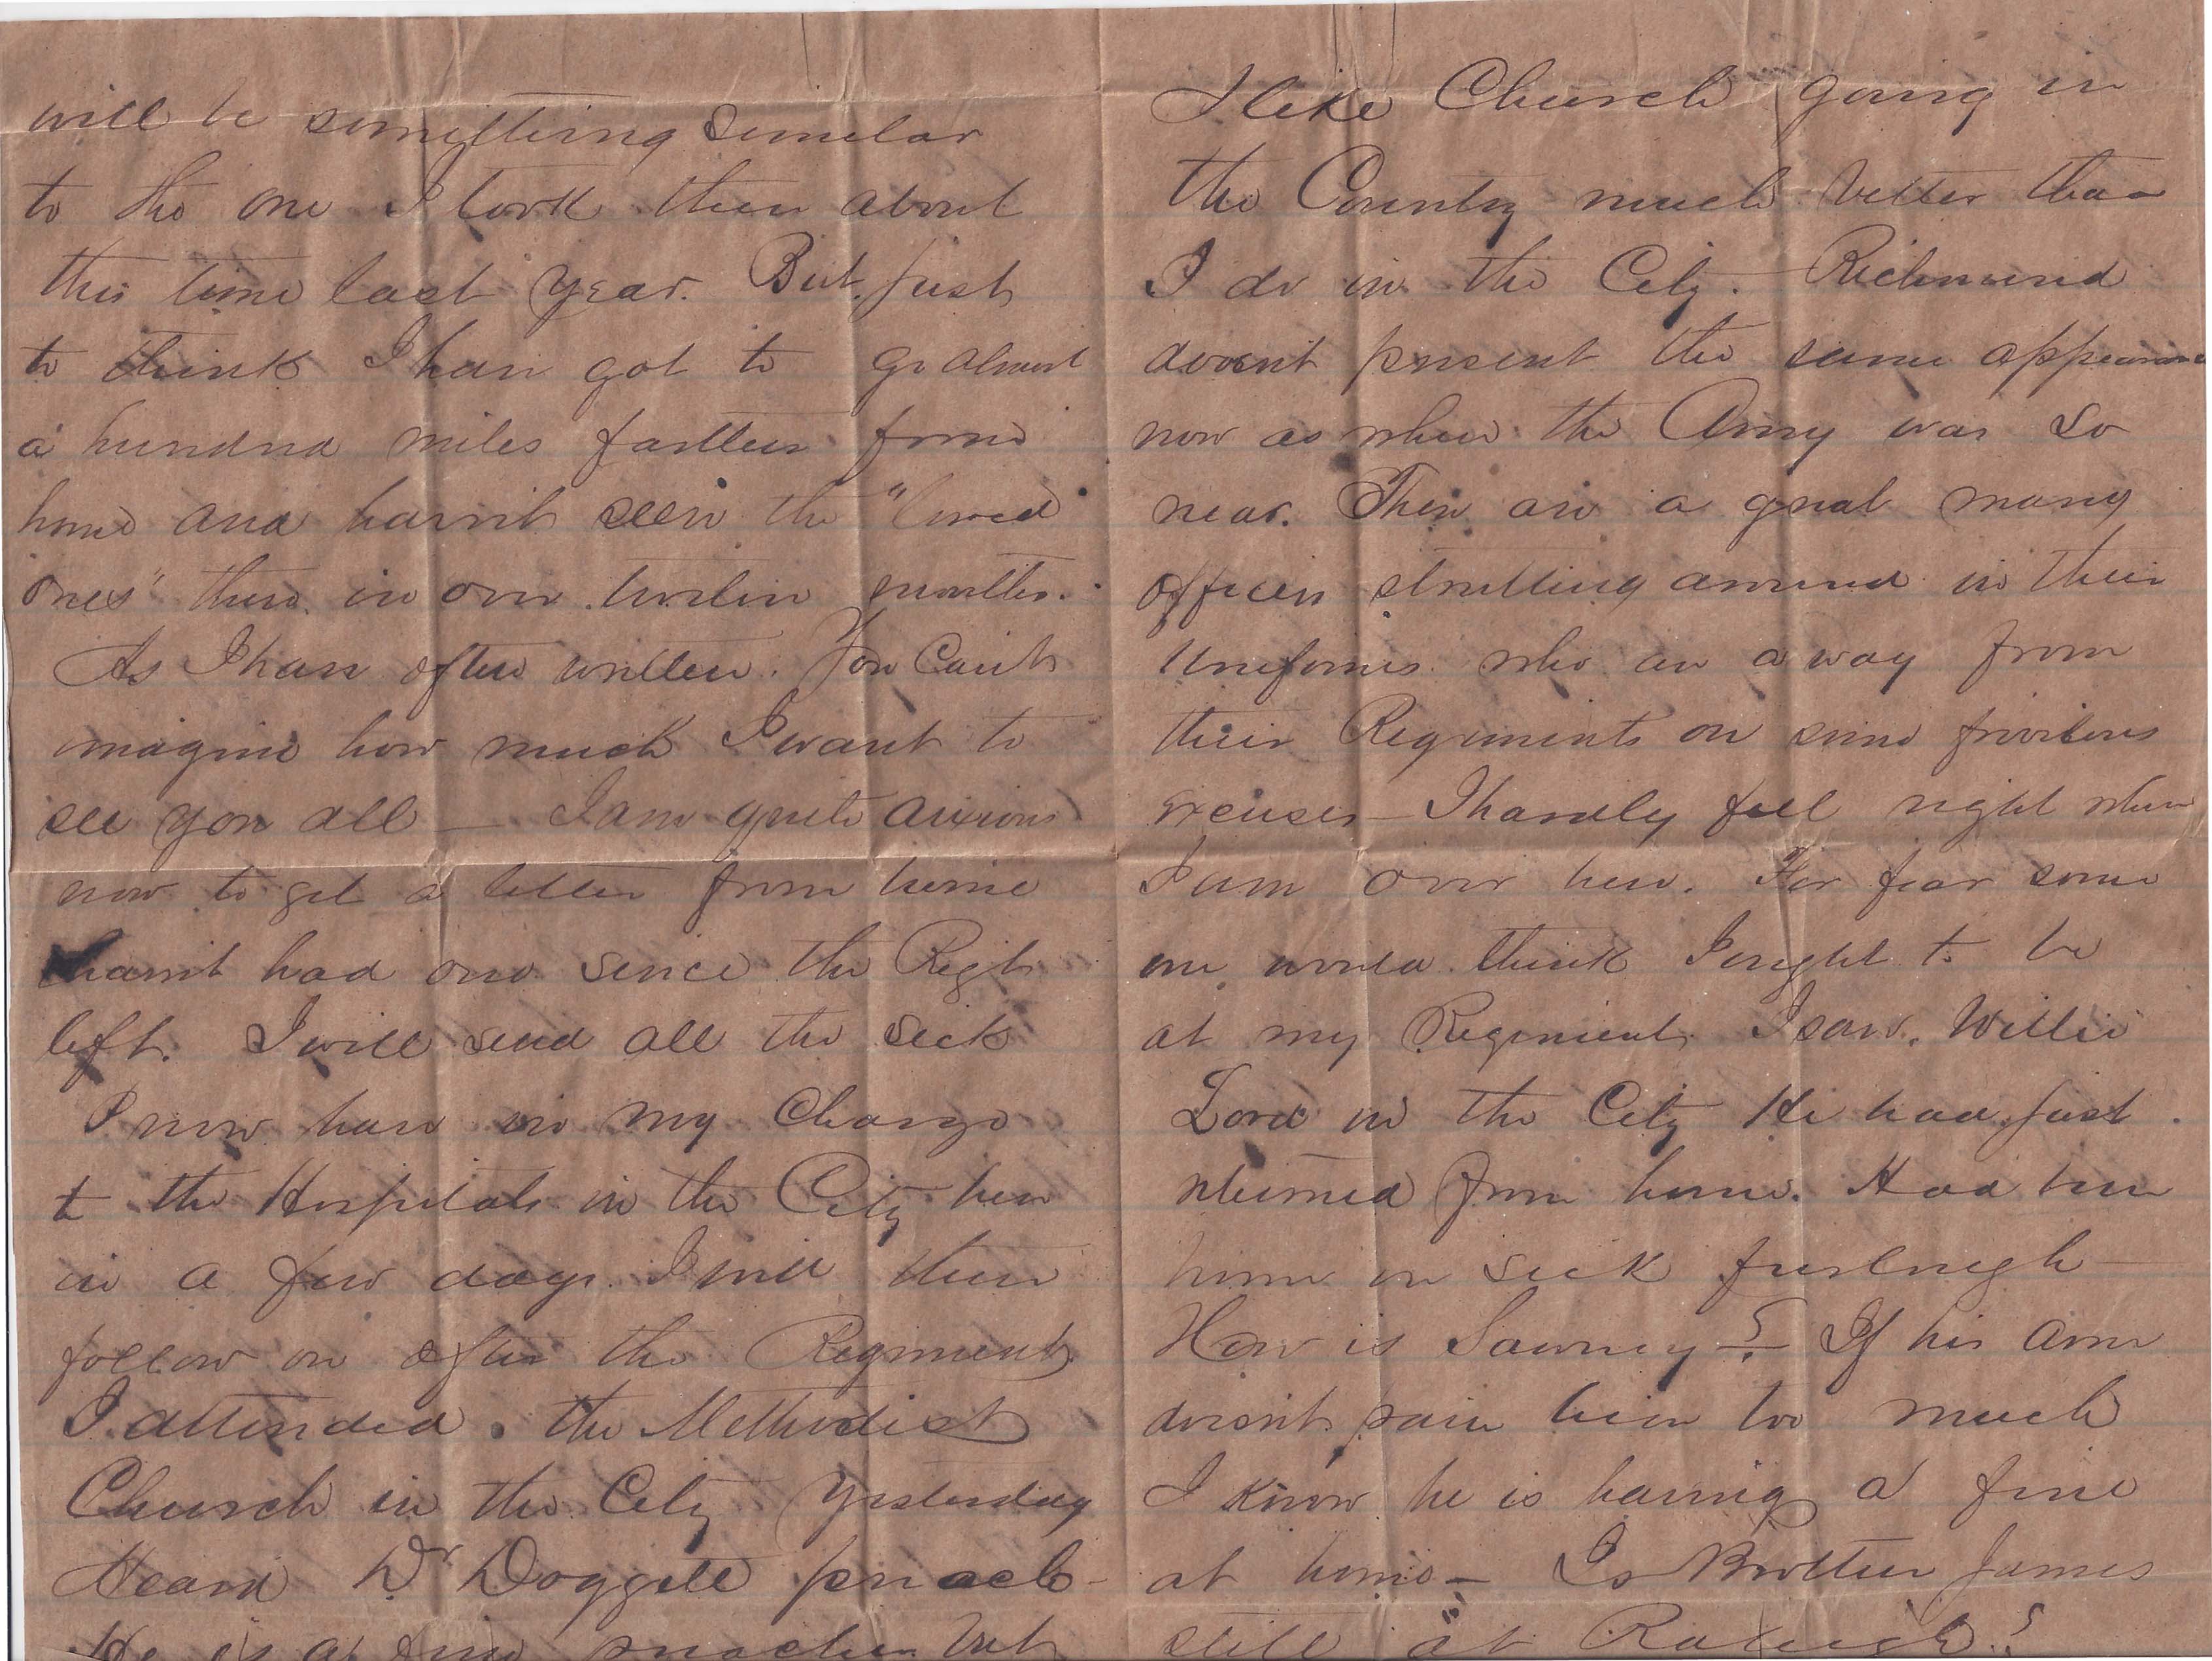 will be something similar
to the one I took then about
this time last year. But just
to think I have got to go almost
a hundred miles farther from
home and havn't seen the "loved
ones" there in over twelve months.
As I have often written. You Can't
imagine how much I want to
see you all — I am quite anxious
now to get a letter from home
havnt had one since the Regt
left. I will send all the sick
I now have in my Charge
to the Hospitals in the City here
in a few days. I will then
follow on after the Regiment
I attended the Methodist
Church in the City yesterday
Heard Dr Doggett preach -
He is a fine preacher but
I like Church going in
the Country much better than
I do in the City. Richmond
doesnt present the same appearance
now as when the Army was so
near. There are a great many
officers strutting around in their
Uniforms who are away from
their Regiments on some frivilous
excuses — I hardly feel right when
I am over here. For fear some
one would think I ought to be
at my Regiment. I saw Willie
Lord in the City He had just
returned from home. Had been
home on sick furlough —
How is Sawney —? If his arm
doesnt pain him too much
I know he is having a fine
at home — Is Brother James
still at Raleigh?